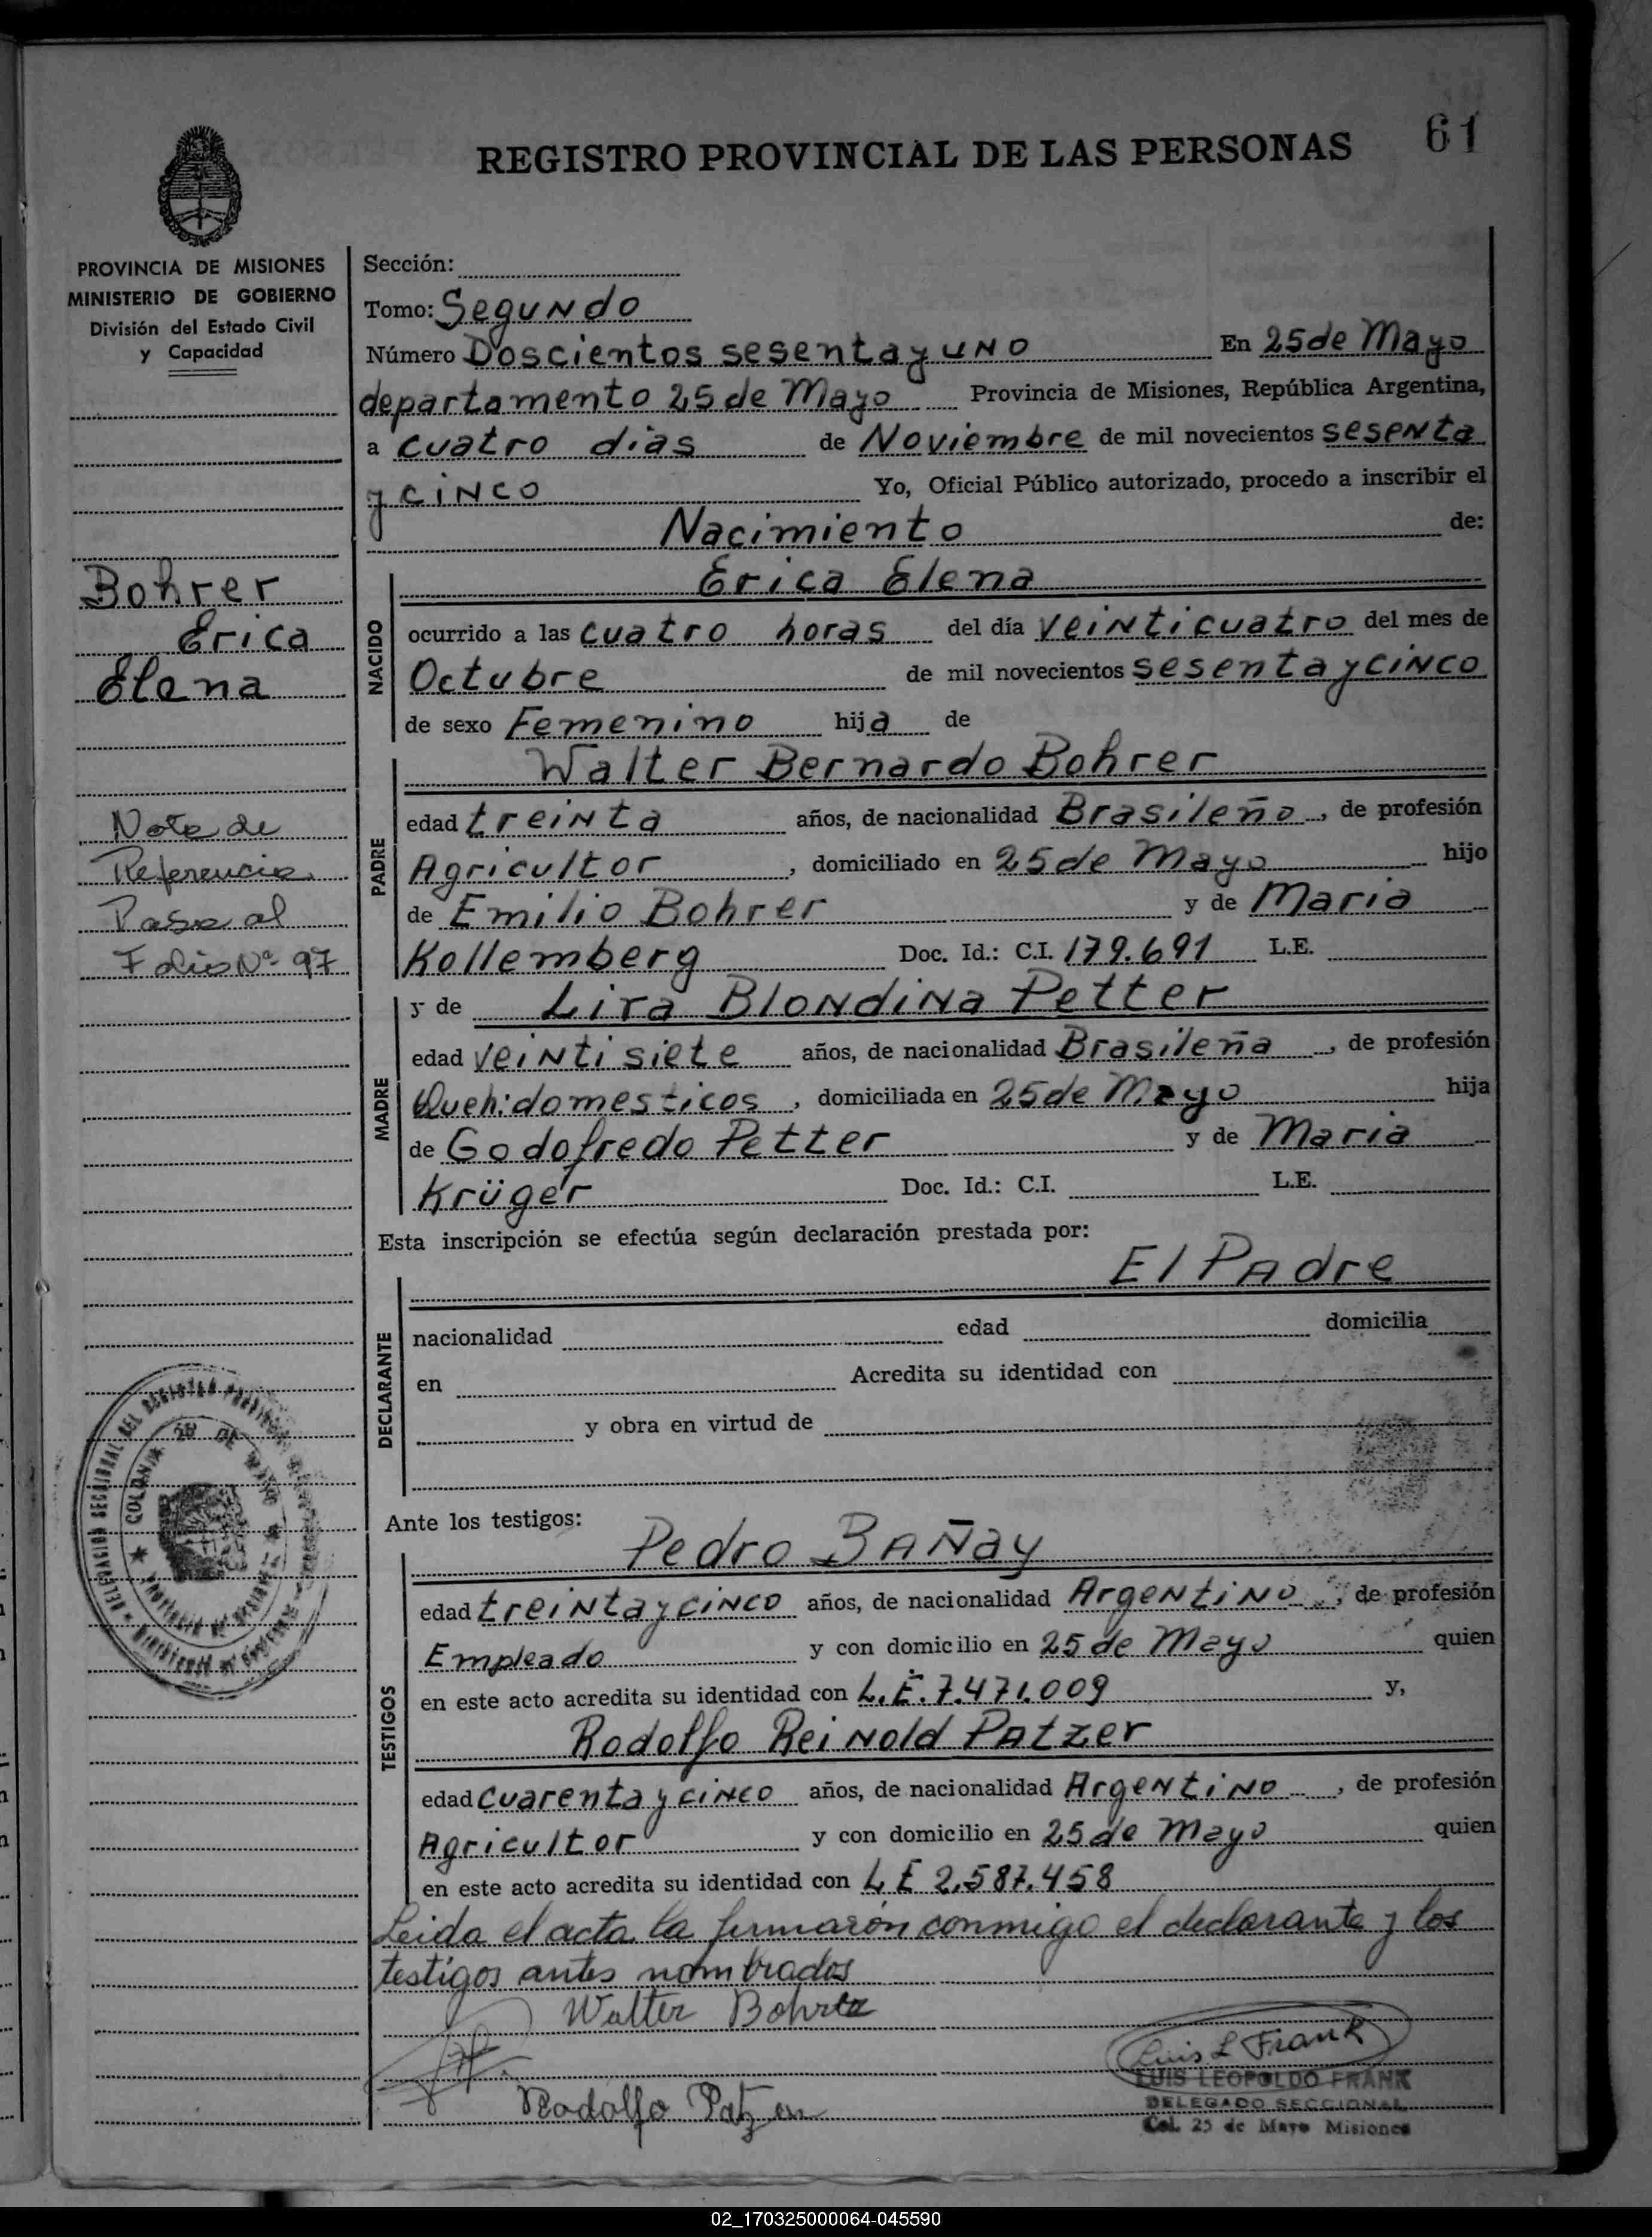 REGISTRO PROVINCIAL DE LAS PERSONAS
61
PROVINCIA DE MISIONES
MINISTERIO DE GOBIERNO
División del Estado Civil
y Capacidad
Bohrer
Erica
Elena
Nota de
Referencia
Pasa al
Folio Nº 97
Sección:
Tomo: Segundo
Número Doscientos sesenta y uno En 25 de Mayo
departamento 25 de Mayo Provincia de Misiones, República Argentina,
a cuatro dias de Noviembre de mil novecientos sesenta
y cinco Yo, Oficial Público autorizado, procedo a inscribir el
Nacimiento de:
NACIDO
Erica Elena
ocurrido a las cuatro horas del día veinticuatro del mes de
Octubre de mil novecientos sesenta y cinco
de sexo Femenino hija de
PADRE
Walter Bernardo Bohrer
edad treinta años, de nacionalidad Brasileño, de profesión
Agricultor, domiciliado en 25 de Mayo hijo
de Emilio Bohrer y de Maria
Kollemberg Doc. Id.: C.I. 179.691 L.E.
MADRE
y de Lira Blondina Petter
edad veintisiete años, de nacionalidad Brasileña, de profesión
Queh: domesticos, domiciliada en 25 de Mayo hija
de Godofredo Petter y de Maria
Krüger Doc. Id.: C.I. L.E.
Esta inscripción se efectúa según declaración prestada por:
El Padre
DECLARANTE
nacionalidad edad domicilia
en Acredita su identidad con
y obra en virtud de
Ante los testigos:
TESTIGOS
Pedro Bañay
edad treinta y cinco años, de nacionalidad Argentino, de profesión
Empleado y con domicilio en 25 de Mayo quien
en este acto acredita su identidad con L.E. 7.471.009 y,
Rodolfo Reinold Patzer
edad cuarenta y cinco años, de nacionalidad Argentino, de profesión
Agricultor y con domicilio en 25 de Mayo quien
en este acto acredita su identidad con L E 2.587.458
Leida el acta la firmarón conmigo el declarante y los
testigos antes nombrados
Walter Bohrer
Luis L Frank
LUIS LEOPOLDO FRANK
DELEGADO SECCIONAL
Col. 25 de Mayo Misiones
Rodolfo Patzer
DELEGACION SECCIONAL DEL REGISTRO
COLONIA 25 DE MAYO
02_170325000064-045590